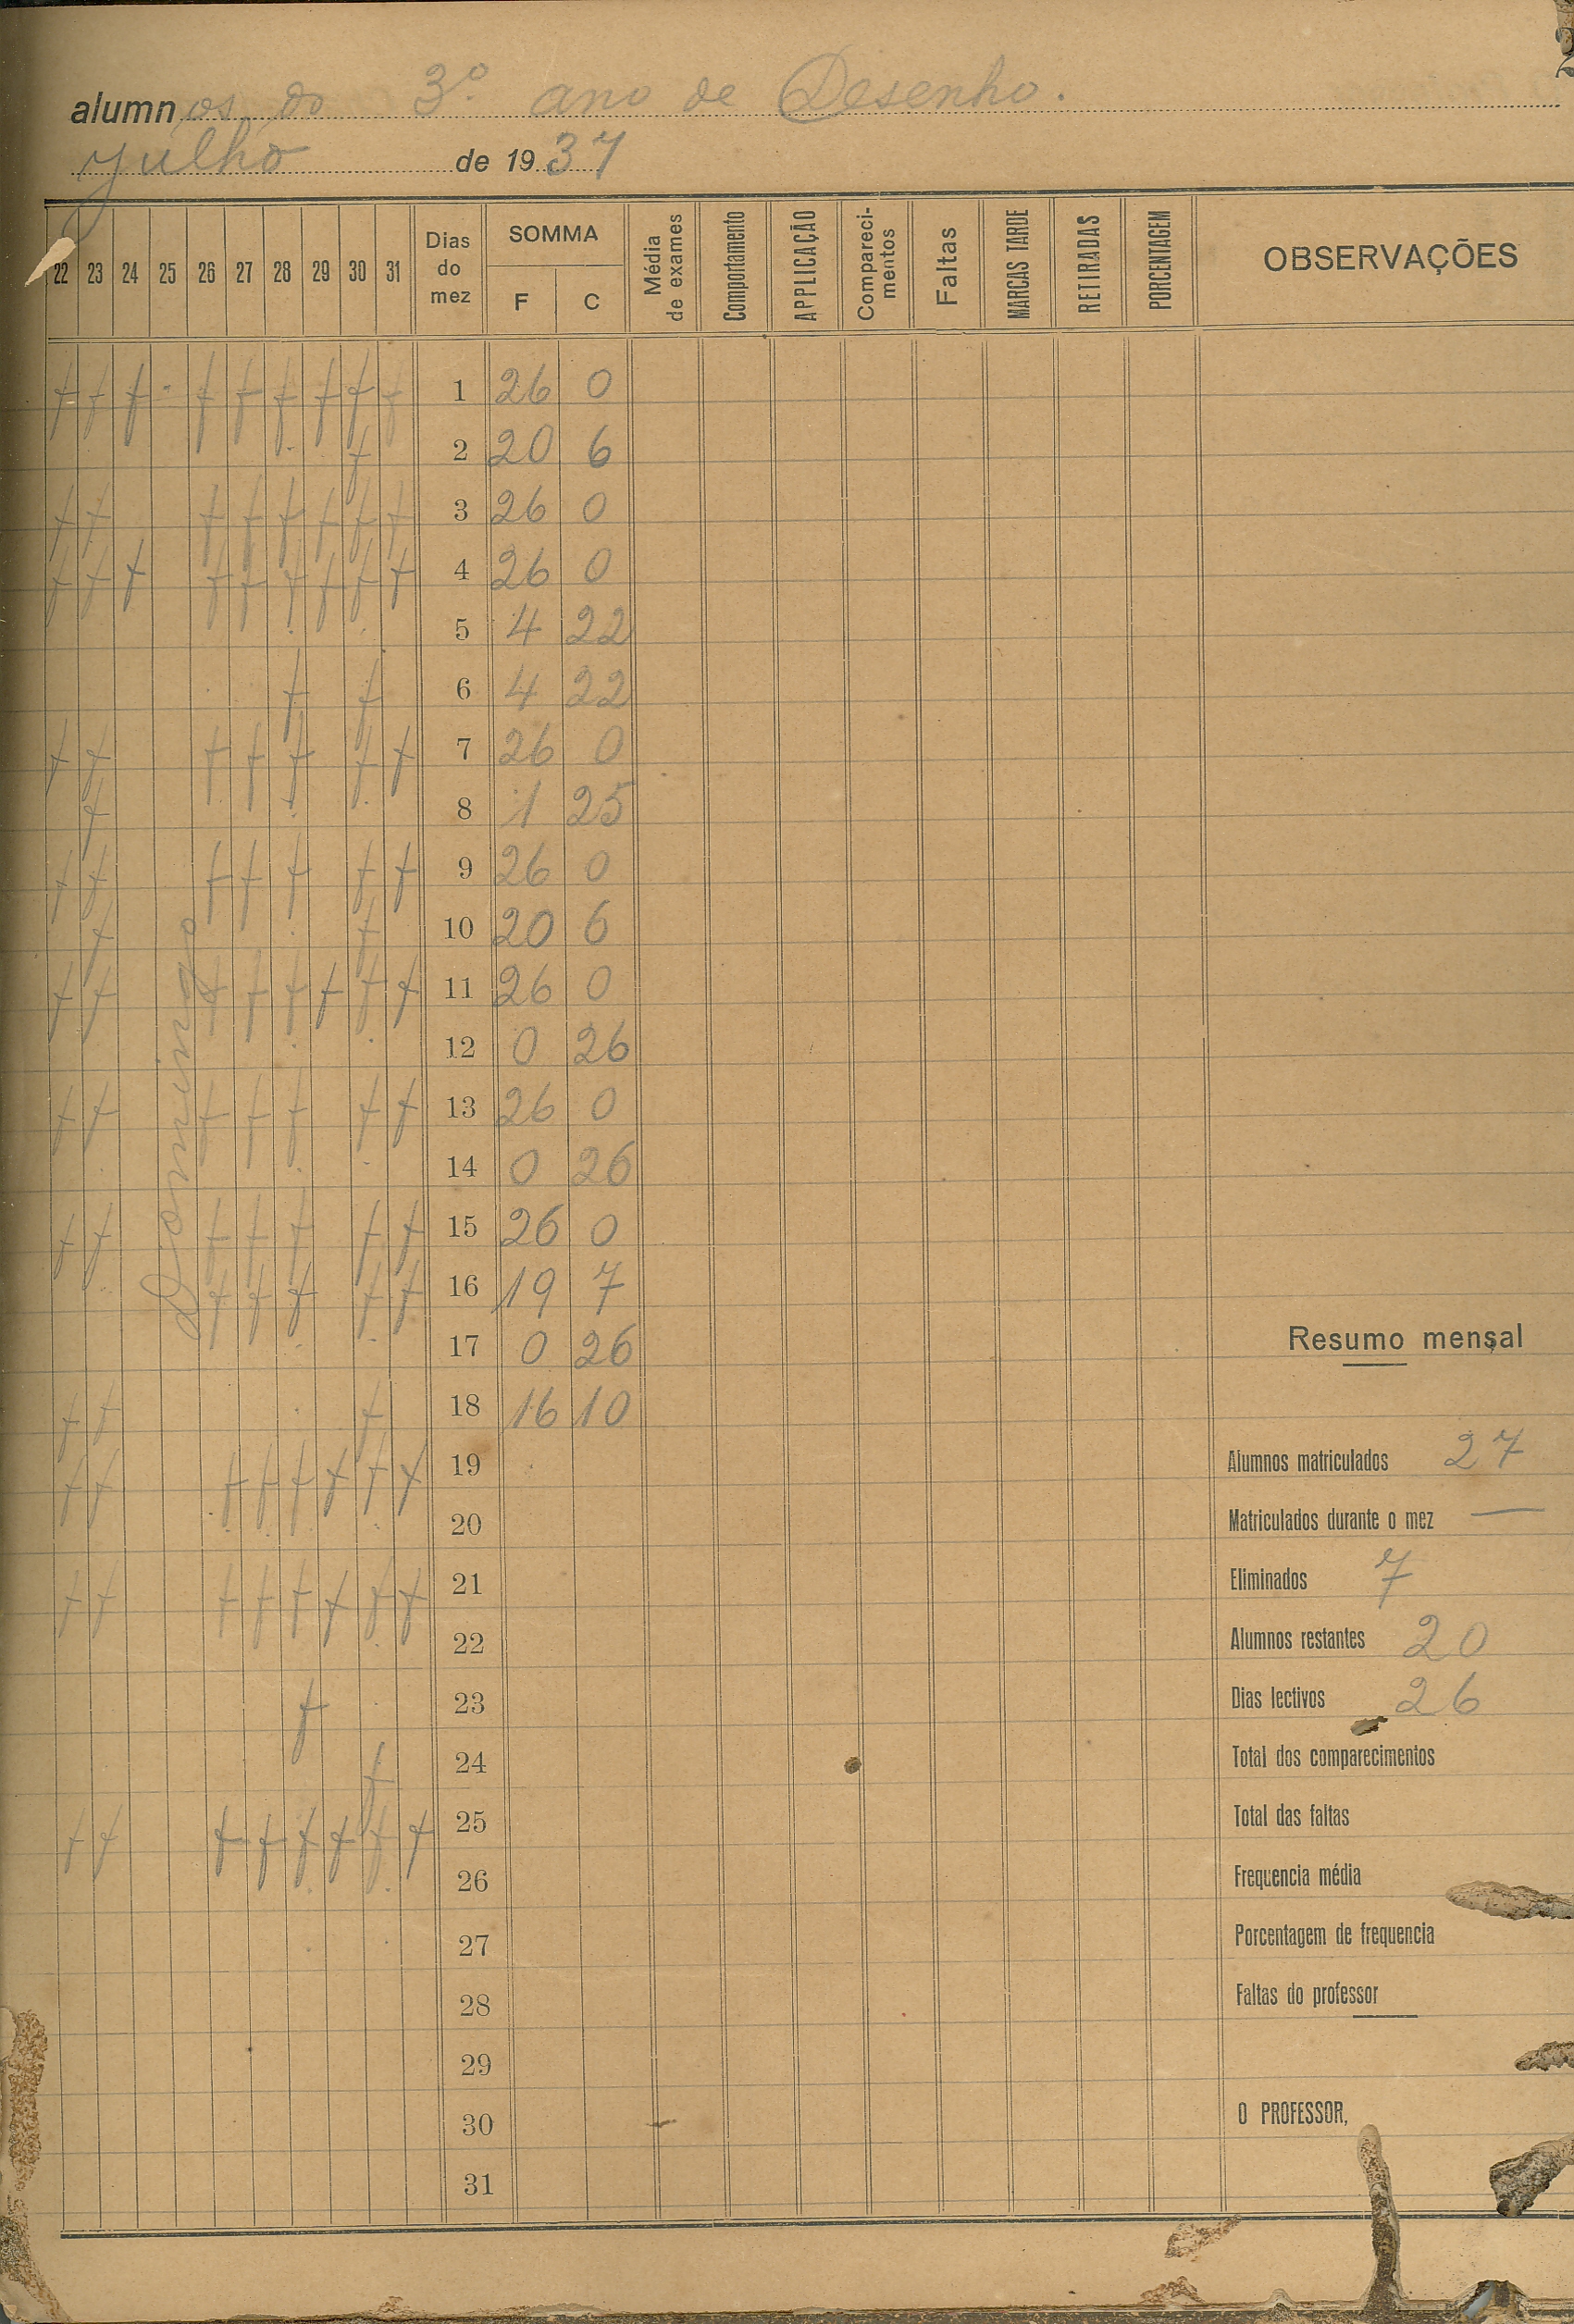 alumnos do 3º ano de Desenho.
julho de 1937
22 23 24 25 26 27 28 29 30 31 Dias do mez SOMMA F C Média de exames Comportamento APPLICAÇÃO Compareci-mentos Faltas MARCAS TARDE RETIRADAS PORCENTAGEM OBSERVAÇÕES
f f f - f f f f f f 1 26 0
f 2 20 6
f f f f f f f f 3 26 0
f f f f f f f f f 4 26 0
5 4 22
f f 6 4 22
f f f f f f f 7 26 0
f 8 1 25
f f f f f f f 9 26 0
f f 10 20 6
f f f f f f f f 11 26 0
12 0 26
f f f f f f f 13 26 0
14 0 26
f f f f f f f 15 26 0
f f f f f 16 19 7
Domingo
17 0 26
Resumo mensal
f f f 18 16 10
f f f f f f f f 19
Alumnos matriculados 27
20
Matriculados durante o mez —
f f f f f f f f 21
Eliminados 7
22
Alumnos restantes 20
f 23
Dias lectivos 26
f 24
Total dos comparecimentos
f f f f f f f f 25
Total das faltas
26
Frequencia média
27
Porcentagem de frequencia
28
Faltas do professor
29
30
O PROFESSOR,
31